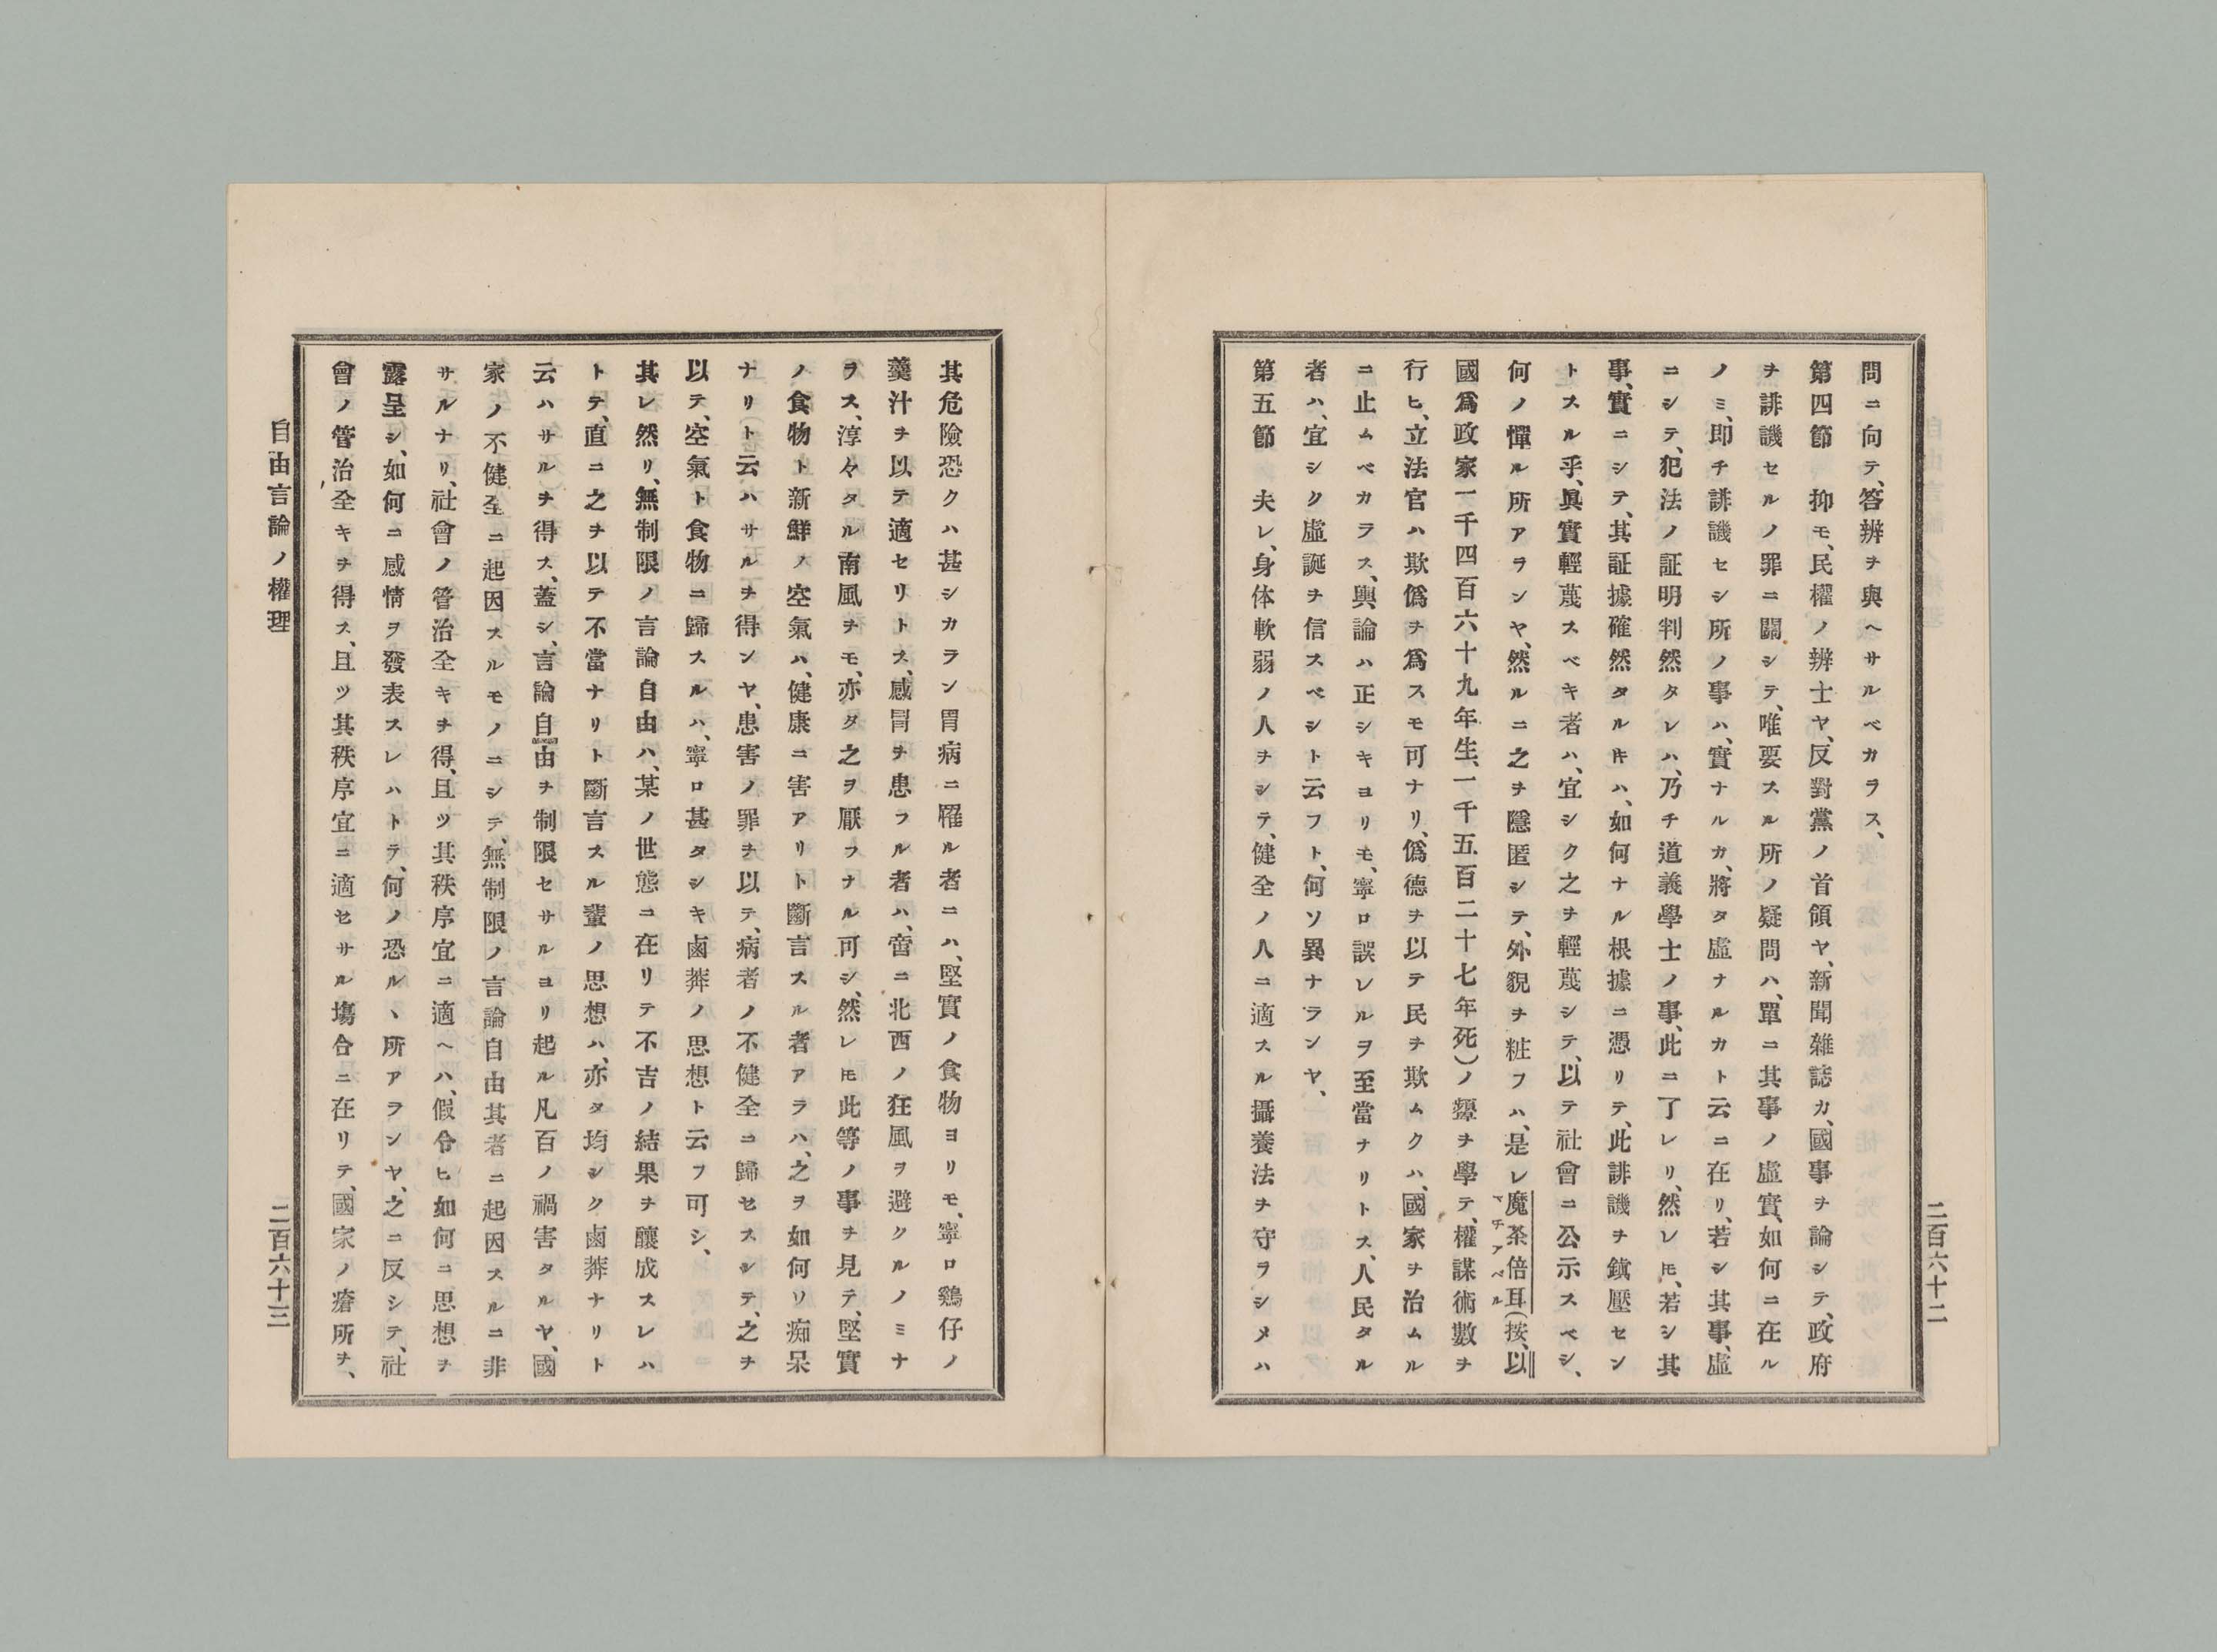 二百六十二
問ニ向テ、答辨ヲ與ヘサルベカラス、
第四節　抑モ、民權ノ辨士ヤ、反對黨ノ首領ヤ、新聞雜誌カ、國事ヲ論シテ、政府
ヲ誹譏セルノ罪ニ關シテ、唯要スル所ノ疑問ハ、單ニ其事ノ虛實、如何ニ在ル
ノミ、即チ誹譏セシ所ノ事ハ、實ナルカ、將タ虛ナルカト云ニ在リ、若シ其事、虛
ニシテ、犯法ノ証明判然タレハ、乃チ道義學士ノ事、此ニ了レリ、然レ𪜈、若シ其
事、實ニシテ、其証據確然タル𪜈ハ、如何ナル根據ニ憑リテ、此誹譏ヲ鎭壓セン
トスル乎、眞實輕蔑スベキ者ハ、宜シク之ヲ輕蔑シテ、以テ社會ニ公示スベシ、
何ノ憚ル所アランヤ、然ルニ之ヲ隱匿シテ、外貌ヲ粧フハ、是レ魔茶倍耳(按、以
國爲政家一千四百六十九年生、一千五百二十七年死)ノ顰ヲ學テ、權謀術數ヲ
行ヒ、立法官ハ欺僞ヲ爲スモ可ナリ、僞德ヲ以テ民ヲ欺ムクハ、國家ヲ治ムル
ニ止ムベカラス、輿論ハ正シキヨリモ、寧ロ誤レルヲ至當ナリトス、人民タル
者ハ、宜シク虛誕ヲ信スベシト云フト、何ソ異ナランヤ、
第五節　夫レ、身体軟弱ノ人ヲシテ、健全ノ人ニ適スル攝養法ヲ守ラシメハ
其危險恐クハ甚シカラン胃病ニ罹ル者ニハ、堅實ノ食物ヨリモ、寧ロ鷄仔ノ
羹汁ヲ以テ適セリトス、感冒ヲ患フル者ハ、啻ニ北西ノ狂風ヲ避クルノミナ
ラス、淳々タル南風ヲモ、亦タ之ヲ厭フナル可シ、然レ𪜈此等ノ事ヲ見テ、堅實
ノ食物ト新鮮ノ空氣ハ、健康ニ害アリト斷言スル者アラハ、之ヲ如何リ痴呆
ナリト云ハサルヲ得ンヤ、患害ノ罪ヲ以テ、病者ノ不健全ニ歸セスシテ、之ヲ
以テ、空氣ト食物ニ歸スルハ、寧ロ甚タシキ鹵莽ノ思想ト云フ可シ、
其レ然リ、無制限ノ言論自由ハ、某ノ世態ニ在リテ不吉ノ結果ヲ釀成スレハ
トテ、直ニ之ヲ以テ不當ナリト斷言スル輩ノ思想ハ、亦タ均シク鹵莽ナリト
云ハサルヲ得ス、蓋シ、言論自由ヲ制限セサルヨリ起ル凡百ノ禍害タルヤ、國
家ノ不健全ニ起因スルモノニシテ、無制限ノ言論自由其者ニ起因スルニ非
サルナリ、社會ノ管治全キヲ得、且ツ其秩序宜ニ適ヘハ、假令ヒ如何ニ思想ヲ
露呈シ、如何ニ感情ヲ發表スレハトテ、何ノ恐ルヽ所アランヤ、之ニ反シテ、社
會ノ管治全キヲ得ス、且ツ其秩序宜ニ適セサル塲合ニ在リテ、國家ノ瘡所ヲ、
自由言論ノ權理
二百六十三